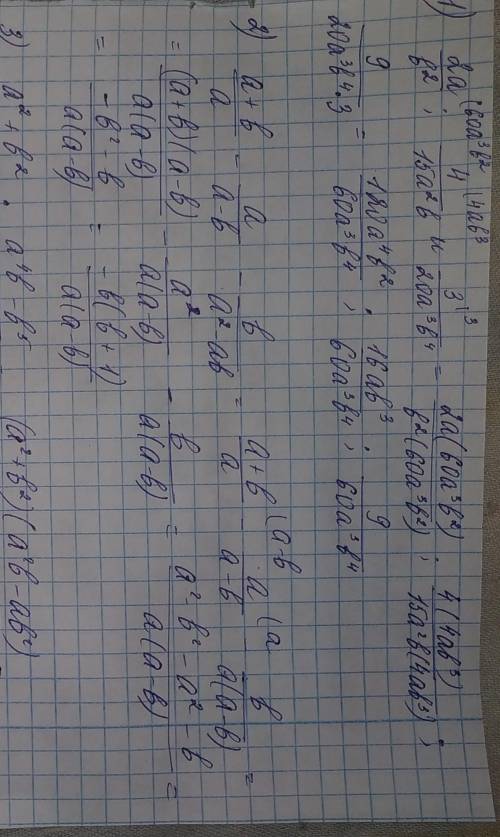 1) 2a/b² (60a³b²; 4/15a²b (4ab³ и 3/20a³b⁴ (3 = 2a(60a³b²)/b²(60a³b²); 4(4ab³)/15a²b(4ab³);
9/20a³b⁴·3 = 120a⁴b²/60a³b⁴; 16ab³/60a³b⁴; 9/60a³b⁴
2) a+b/a - a/a-b - b/a²-ab = a+b/a (a-b - a/a-b (a - b/a(a-b) =
= (a+b)(a-b)/a(a-b) - a²/a(a-b) - b/a(a-b) = a²-b²-a²-b/a(a-b) =
= -b²-b/a(a-b) = -b(b+1)/a(a-b)
3) a²+b² . a⁴b-b⁵ (a²+b²)(a²b-ab²)